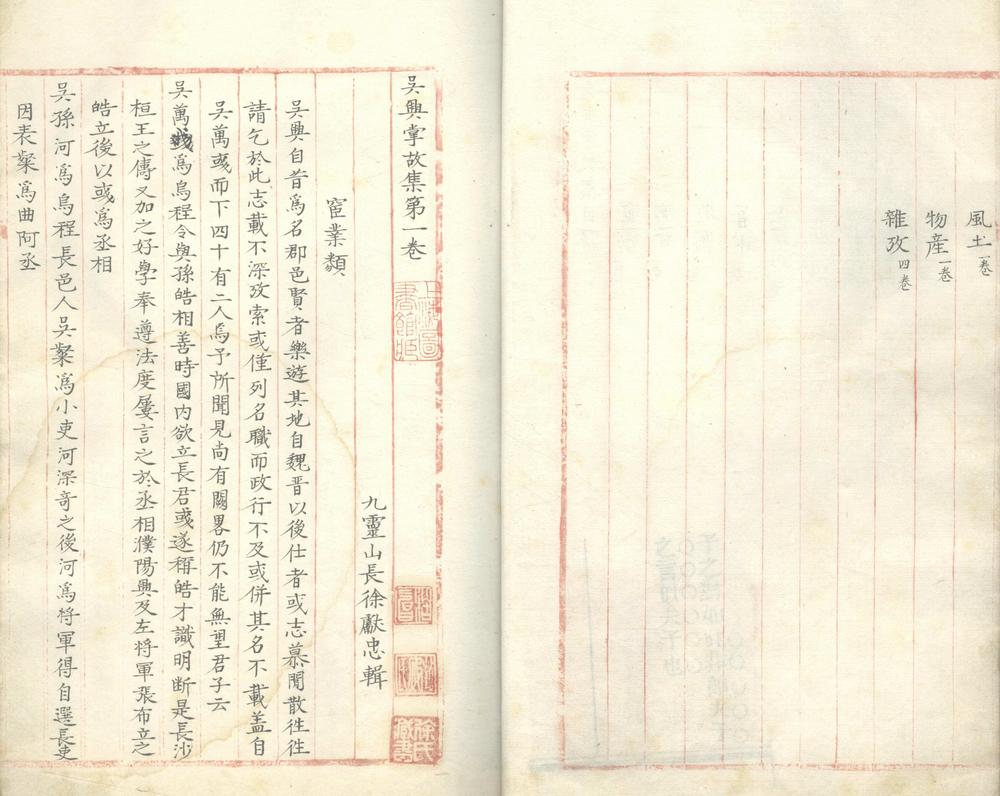 風土一卷
物產一卷
雜攷四卷
吳興掌故集第一卷
上海圖書館藏
徐氏藏書
九靈山長徐獻忠輯
宦業類
吳興自昔爲名郡邑賢者樂遊其地自魏晉以後仕者或志慕閒散徃徃
請乞於此志載不深攷索或僅列名職而政行不及或併其名不載盖自
吳萬彧而下四十有二人焉予所聞見尚有闕畧仍不能無望君子云
吳萬彧爲烏程令與孫皓相善時國內欲立長君彧遂稱皓才識明断是長沙
桓王之儔又加之好學奉遵法度屢言之於丞相濮陽興及左將軍張布立之
皓立後以彧爲丞相
吳孫河爲烏程長邑人吳粲爲小吏河深奇之後河爲將軍得自選長吏
因表粲爲曲阿丞